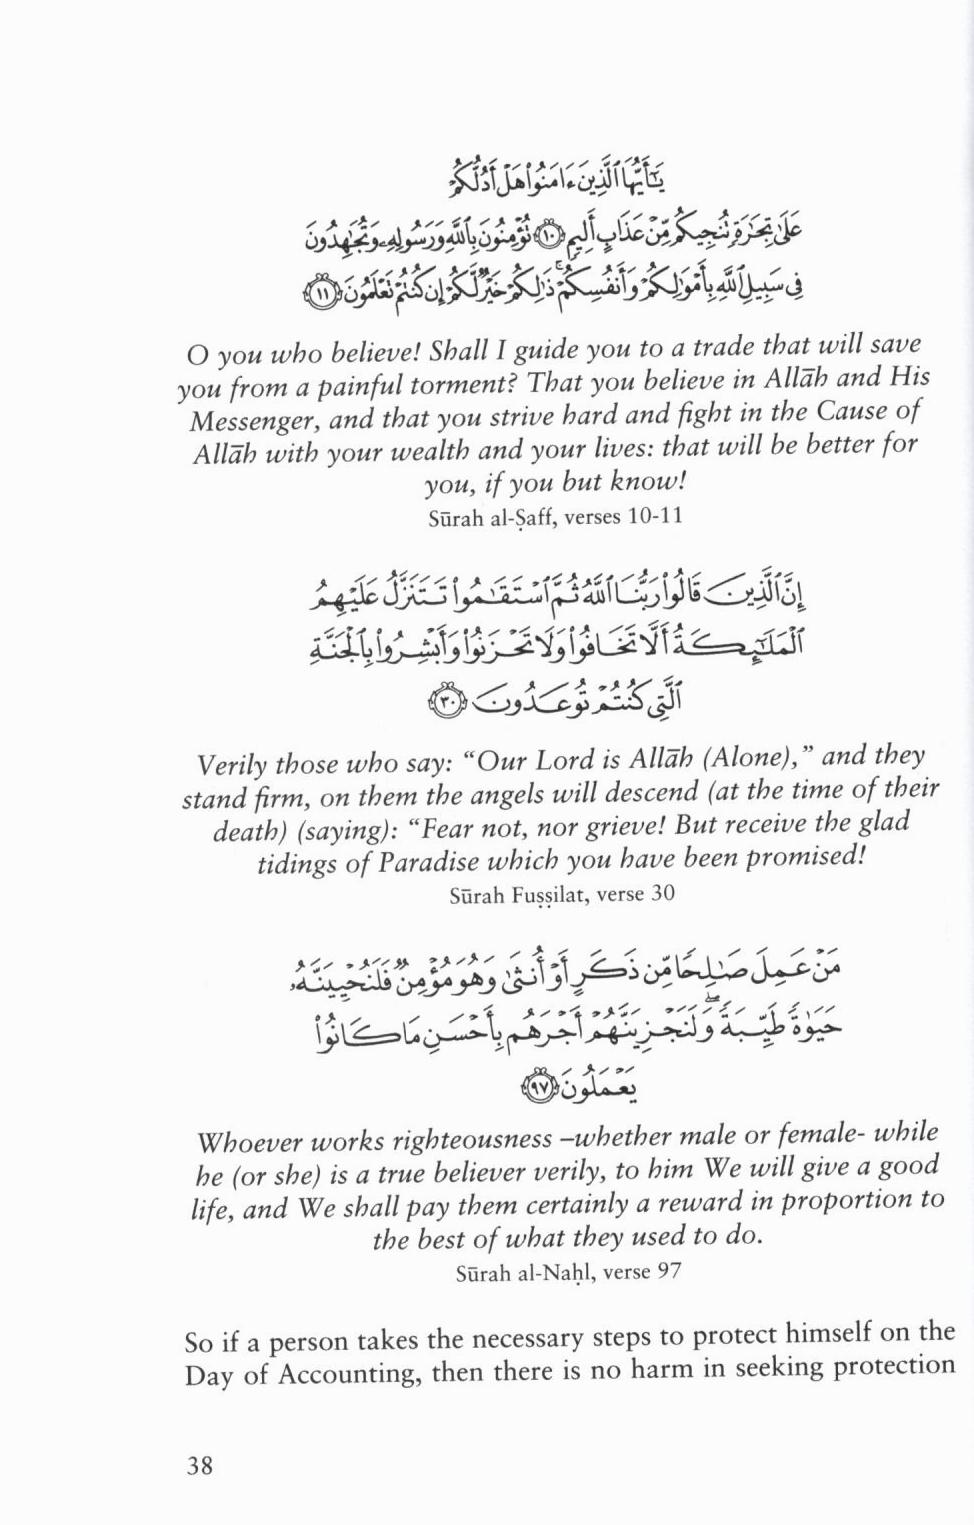 يَٰٓأَيُّهَا ٱلَّذِينَ ءَامَنُوا۟ هَلْ أَدُلُّكُمْ
عَلَىٰ تِجَٰرَةٍ تُنجِيكُم مِّنْ عَذَابٍ أَلِيمٍ ﴿١٠﴾ تُؤْمِنُونَ بِٱللَّهِ وَرَسُولِهِۦ وَتُجَٰهِدُونَ
فِى سَبِيلِ ٱللَّهِ بِأَمْوَٰلِكُمْ وَأَنفُسِكُمْ ۚ ذَٰلِكُمْ خَيْرٌ لَّكُمْ إِن كُنتُمْ تَعْلَمُونَ ﴿١١﴾
O you who believe! Shall I guide you to a trade that will save
you from a painful torment? That you believe in Allāh and His
Messenger, and that you strive hard and fight in the Cause of
Allāh with your wealth and your lives: that will be better for
you, if you but know!
Sūrah al-Ṣaff, verses 10-11
إِنَّ ٱلَّذِينَ قَالُوا۟ رَبُّنَا ٱللَّهُ ثُمَّ ٱسْتَقَٰمُوا۟ تَتَنَزَّلُ عَلَيْهِمُ
ٱلْمَلَٰٓئِكَةُ أَلَّا تَخَافُوا۟ وَلَا تَحْزَنُوا۟ وَأَبْشِرُوا۟ بِٱلْجَنَّةِ
ٱلَّتِى كُنتُمْ تُوعَدُونَ ﴿٣٠﴾
Verily those who say: “Our Lord is Allāh (Alone),” and they
stand firm, on them the angels will descend (at the time of their
death) (saying): “Fear not, nor grieve! But receive the glad
tidings of Paradise which you have been promised!
Sūrah Fuṣṣilat, verse 30
مَنْ عَمِلَ صَٰلِحًا مِّن ذَكَرٍ أَوْ أُنثَىٰ وَهُوَ مُؤْمِنٌ فَلَنُحْيِيَنَّهُۥ
حَيَوٰةً طَيِّبَةً ۖ وَلَنَجْزِيَنَّهُمْ أَجْرَهُم بِأَحْسَنِ مَا كَانُوا۟
يَعْمَلُونَ ﴿٩٧﴾
Whoever works righteousness –whether male or female- while
he (or she) is a true believer verily, to him We will give a good
life, and We shall pay them certainly a reward in proportion to
the best of what they used to do.
Sūrah al-Naḥl, verse 97
So if a person takes the necessary steps to protect himself on the
Day of Accounting, then there is no harm in seeking protection
38